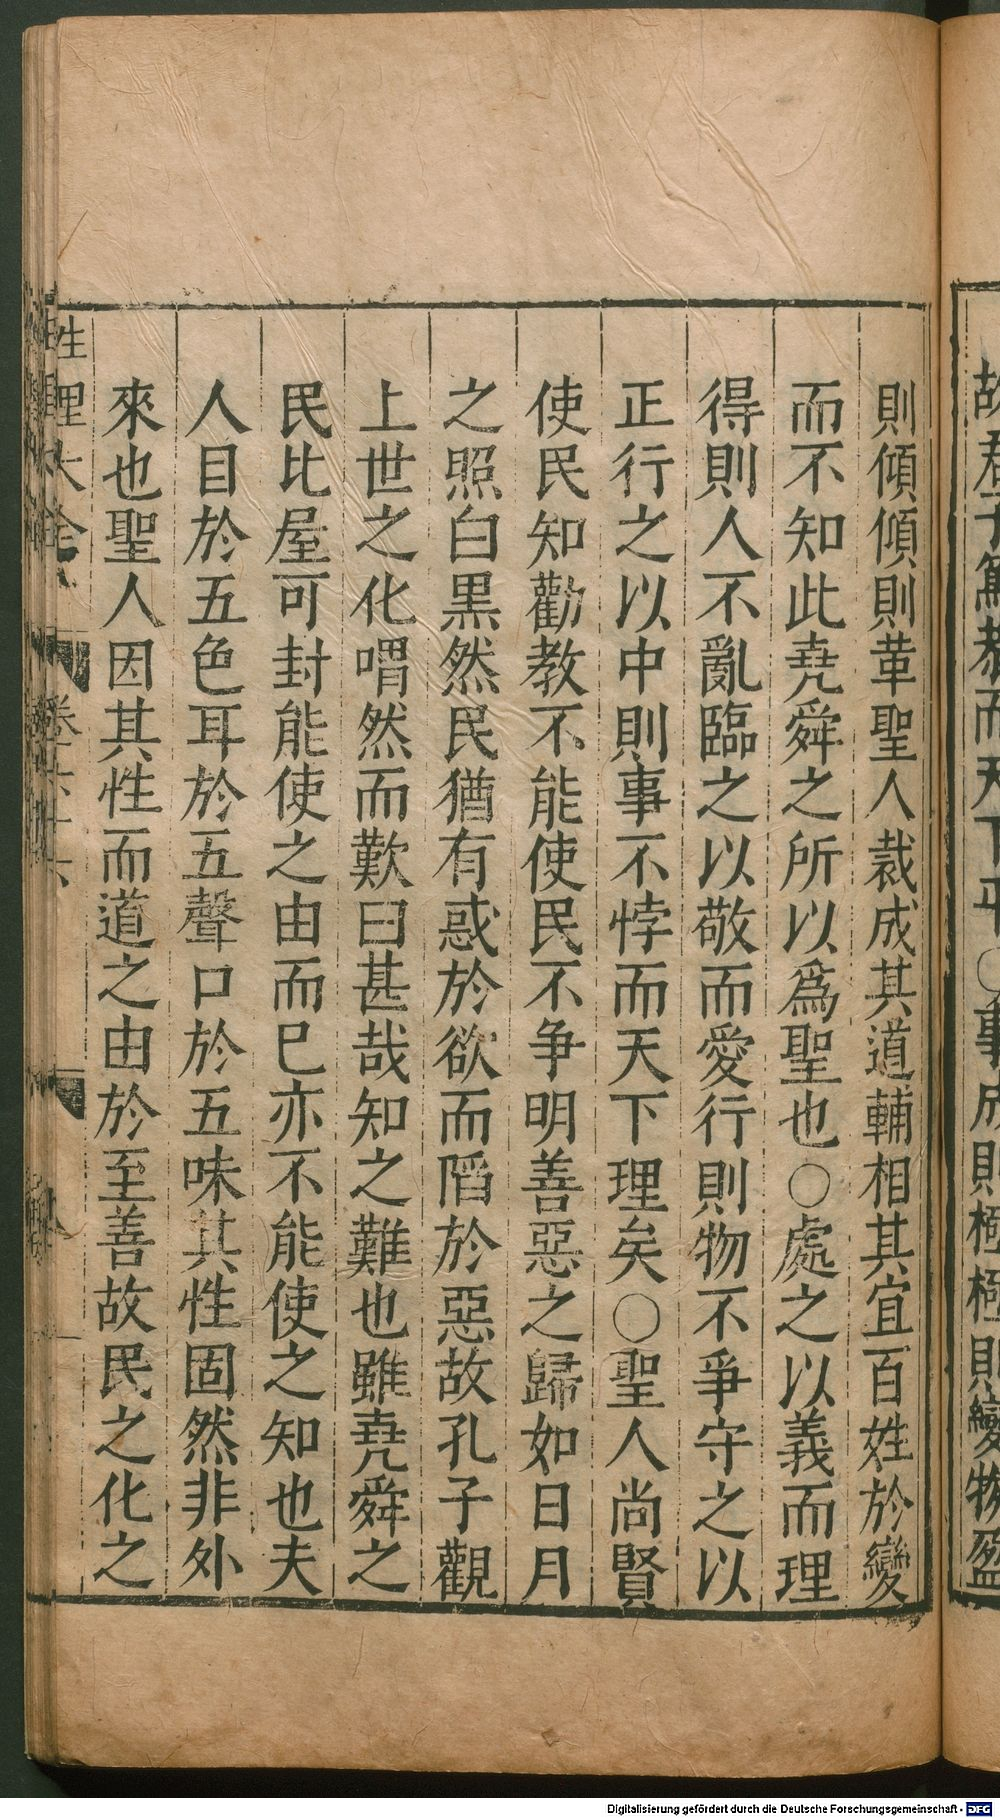 故君子篤恭而天下平○事成則極極則變物盈
則傾傾則革聖人裁成其道輔相其宜百姓於變
而不知此堯舜之所以爲聖也○處之以義而理
得則人不亂臨之以敬而愛行則物不爭守之以
正行之以中則事不悖而天下理矣○聖人尚賢
使民知勸教不能使民不争明善惡之歸如日月
之照白黒然民猶有惑於欲而䧟於惡故孔子觀
上世之化喟然而歎曰甚哉知之難也雖堯舜之
民比屋可封能使之由而已亦不能使之知也夫
人目於五色耳於五聲口於五味其性固然非外
來也聖人因其性而道之由於至善故民之化之
性理大全 卷六十六
Digitalisierung gefördert durch die Deutsche Forschungsgemeinschaft - DFG